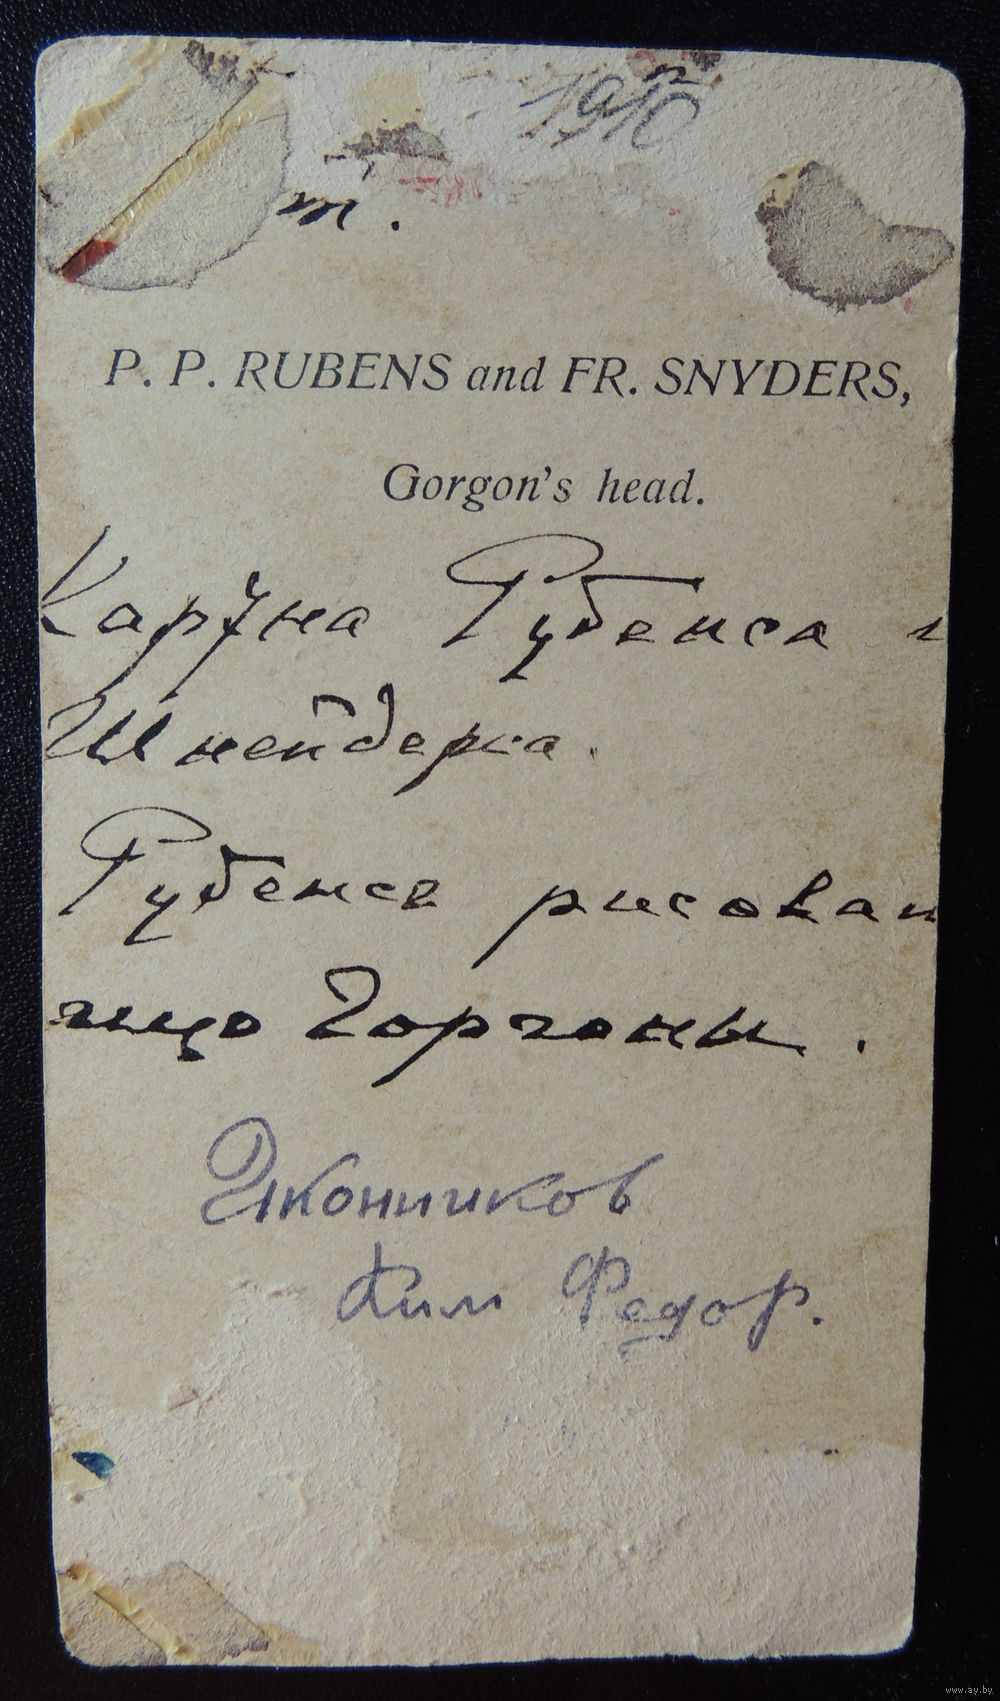 1910
т.
P. P. RUBENS and FR. SNYDERS,
Gorgon's head.
Картина Рубенса и
Шнейдерса.
Рубенсе рисовал
лицо Горгоны.
Иконников
Ким Федор.
www.ay.by